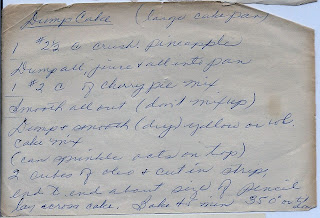 Dump Cake (large cake pan)
1 #2½ c crush. pineapple
Dump all, juice & all into pan
1 #2 c of cherry pie mix
Smooth all out (don't mix up)
Dump & smooth (dry) yellow or
cake mix
(can sprinkle nuts on top)
2 cubes of oleo & cut in strips,
end to end about size of pencil
lay across cake. Bake 45 min 350° or